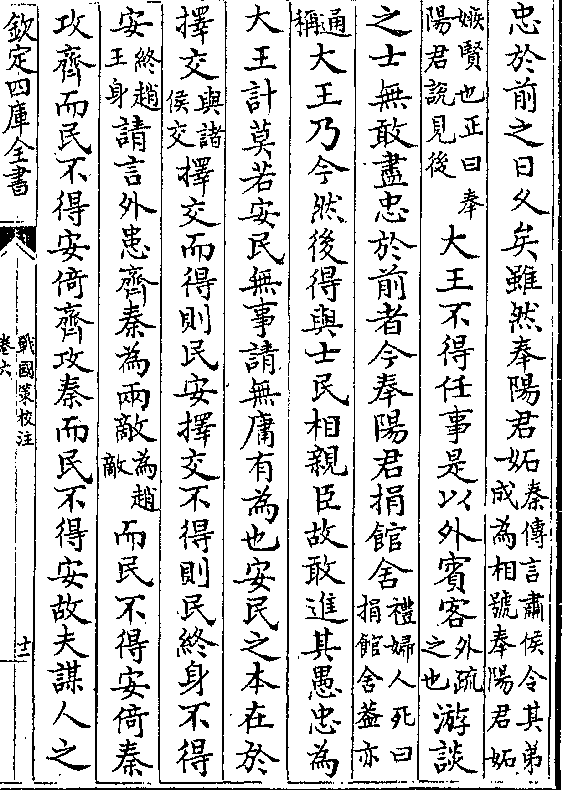 忠於前之日久矣雖然奉陽君妬秦傳言肅侯令其弟成為相號奉陽君妬
嫉賢也正曰奉陽君說見後大王不得任事是以外賓客外疏之也游談
之士無敢盡忠於前者今奉陽君捐館舍禮婦人死曰捐館舍葢亦
通稱大王乃今然後得與士民相親臣故敢進其愚忠為
大王計莫若安民無事請無庸有為也安民之本在於
擇交與諸侯交擇交而得則民安擇交不得則民終身不得
安終趙王身請言外患齊秦為兩敵為趙敵而民不得安倚秦
攻齊而民不得安倚齊攻秦而民不得安故夫謀人之
欽定四庫全書
戰國策校注
卷六
十二